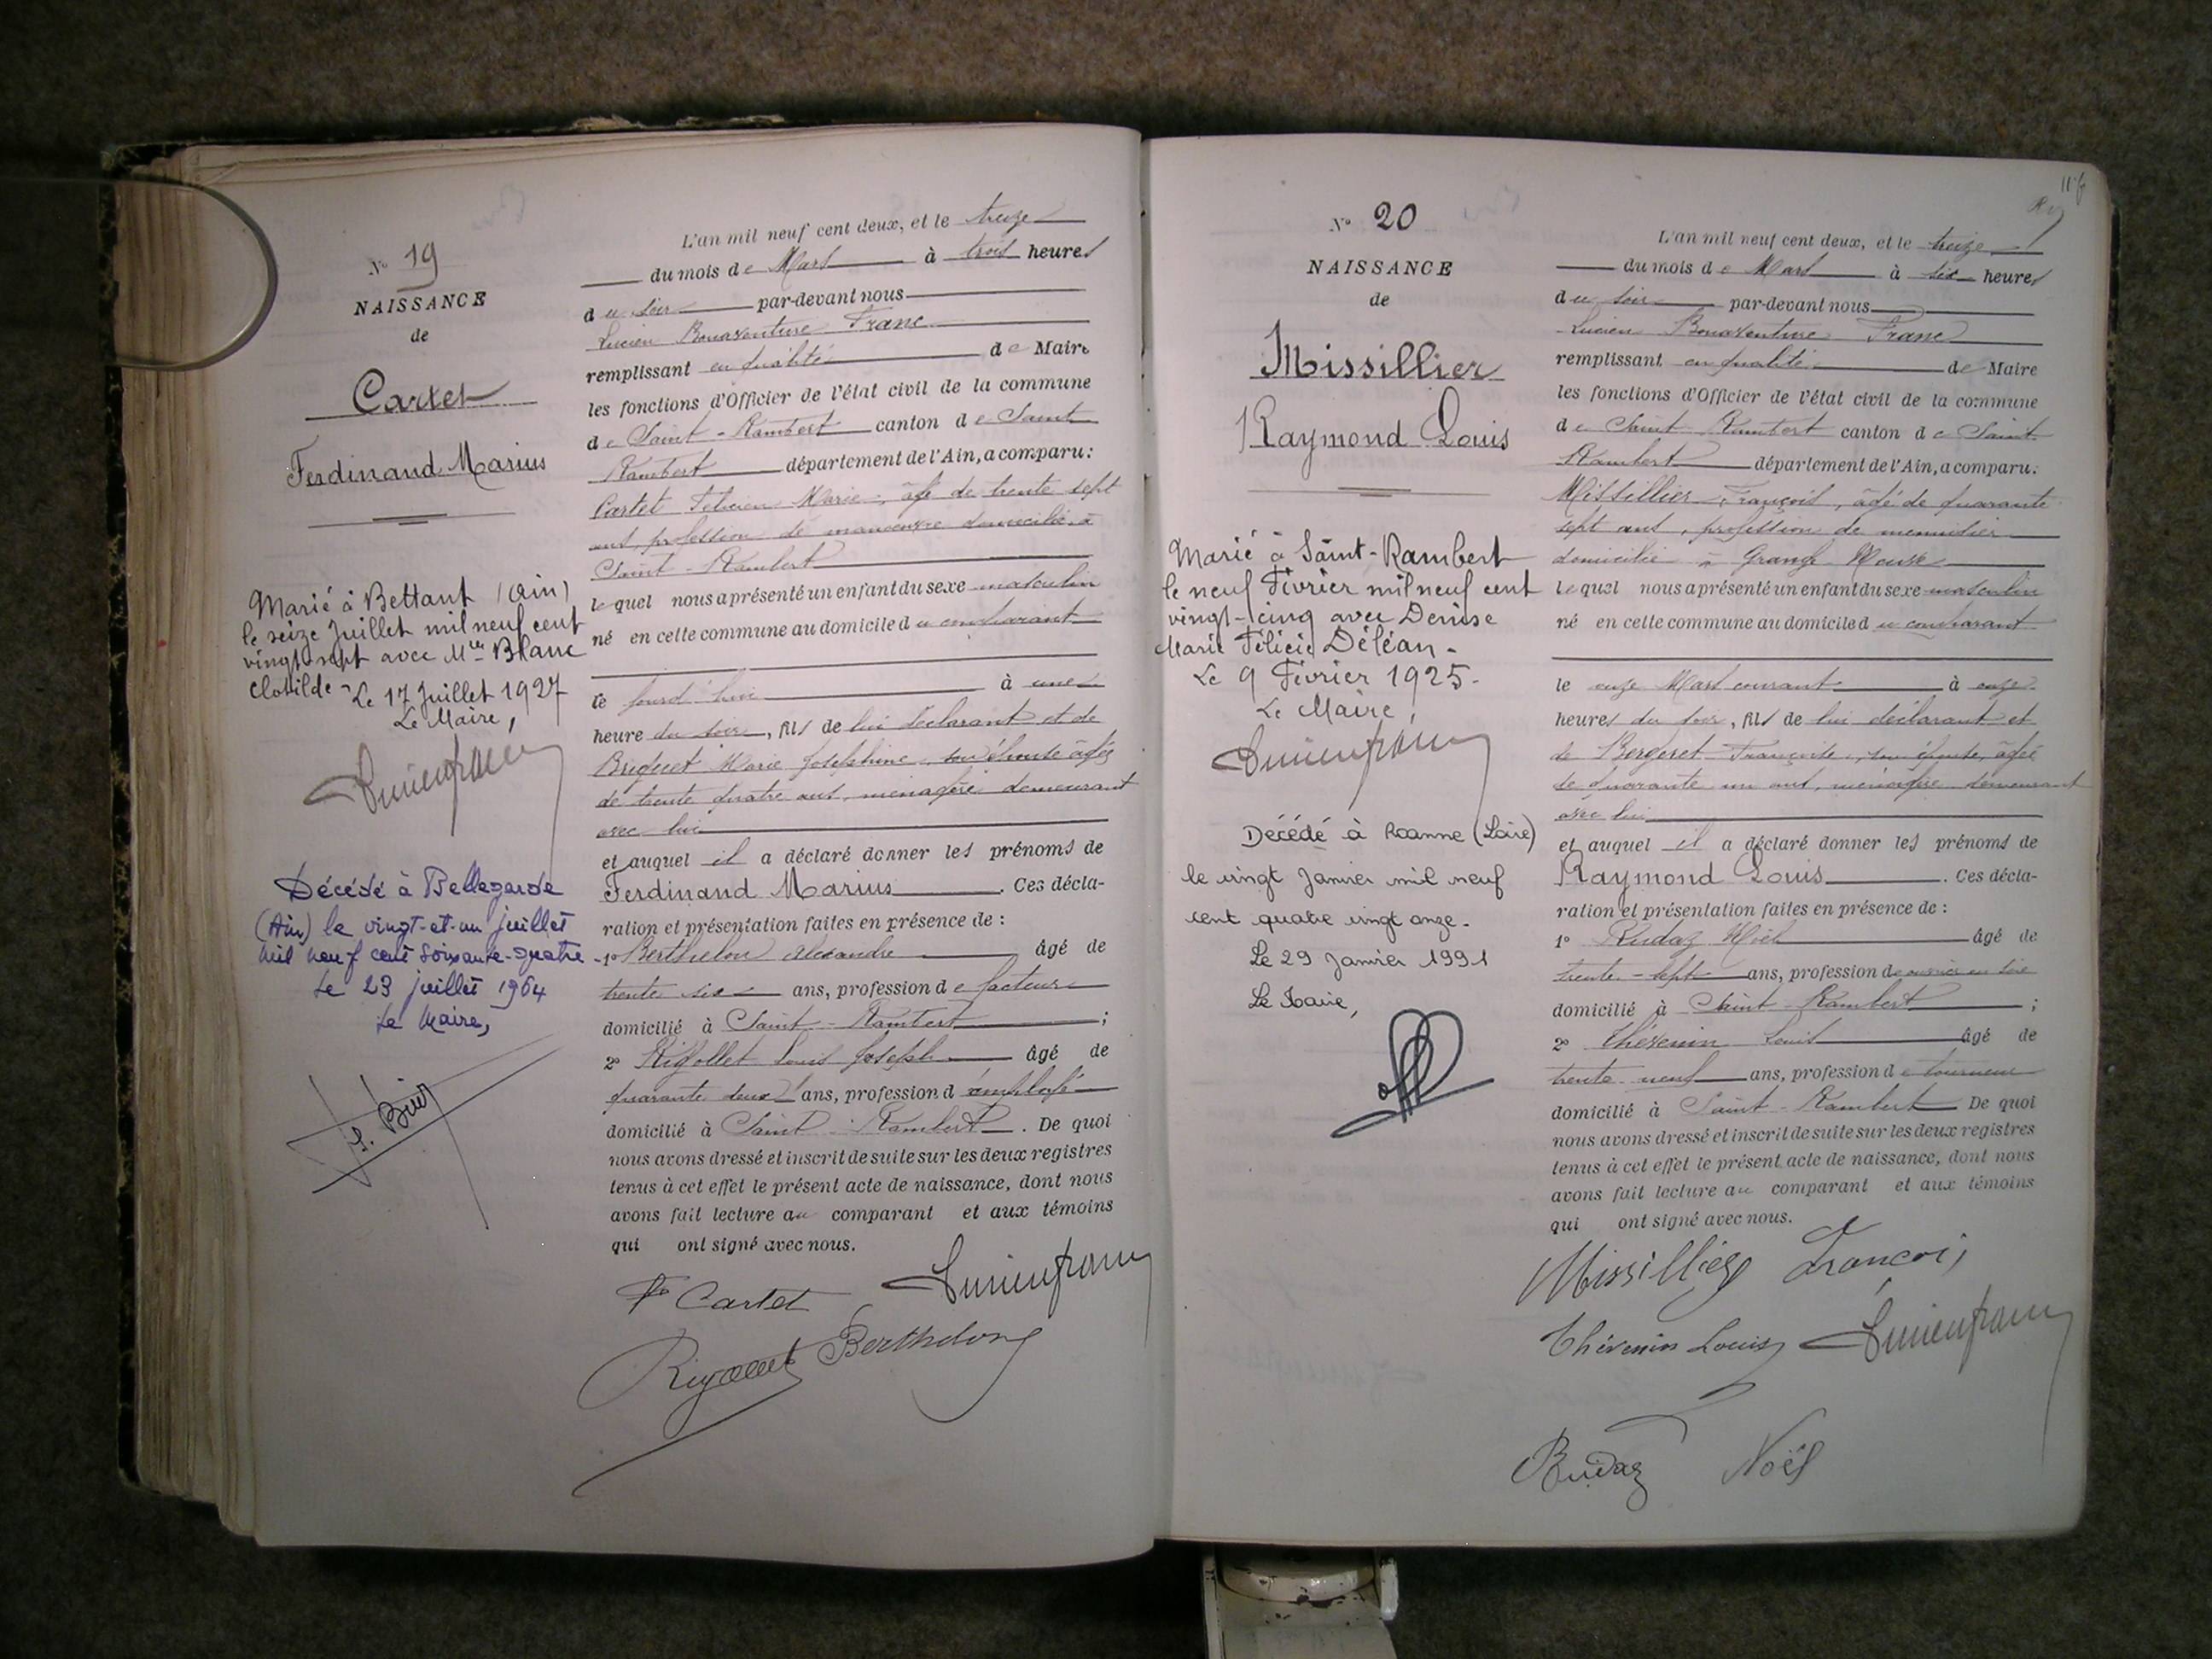 N° 19
NAISSANCE
de
Cartet
Ferdinand Marius
Marié à Bettant (Ain)
le seize Juillet mil neuf cent
vingt-sept avec Mlle Blanc
Clotilde - Le 17 Juillet 1927
Le Maire,
Lucien franc
Décédé à Bellegarde
(Ain) le vingt-et-un juillet
mil neuf cent soixante-quatre
Le 23 juillet 1964
Le Maire,
L'an mil neuf cent deux, et le treize
du mois de Mars à trois heures
du soir par-devant nous
Lucien Bonaventure Franc
remplissant en qualité de Maire
les fonctions d'Officier de l'état civil de la commune
de Saint-Rambert canton de Saint
Rambert département de l'Ain, a comparu :
Cartet Félicien Marie, âgé de trente sept
ans, profession de manoeuvre domicilié à
Saint-Rambert
lequel nous a présenté un enfant du sexe masculin
né en cette commune au domicile du comparant
ce jourd'hui à une
heure du soir, fils de lui déclarant et de
Marie Joséphine, son épouse âgée
de trente quatre ans, ménagère demeurant
avec lui
et auquel il a déclaré donner les prénoms de
Ferdinand Marius. Ces décla-
ration et présentation faites en présence de :
1° Berthelon Alexandre âgé de
trente six ans, profession de facteur
domicilié à Saint-Rambert ;
2° Rigollet Louis Joseph âgé de
quarante deux ans, profession d'employé
domicilié à Saint Rambert. De quoi
nous avons dressé et inscrit de suite sur les deux registres
tenus à cet effet le présent acte de naissance, dont nous
avons fait lecture au comparant et aux témoins
qui ont signé avec nous.
Cartet Lucien franc
Rigollet Berthelon
N° 20
NAISSANCE
de
Missillier
Raymond Louis
Marié à Saint-Rambert
le neuf Février mil neuf cent
vingt-cinq avec Denise
Marie Félicie Déléan -
Le 9 Février 1925 -
Le Maire,
Lucien franc
Décédé à Roanne (Loire)
le vingt Janvier mil neuf
cent quatre vingt onze -
Le 29 Janvier 1991
Le Maire,
L'an mil neuf cent deux, et le treize
du mois de Mars à six heures
du soir par-devant nous
Lucien Bonaventure Franc
remplissant en qualité de Maire
les fonctions d'Officier de l'état civil de la commune
de Saint Rambert canton de Saint
Rambert département de l'Ain, a comparu :
Missillier François, âgé de quarante
sept ans, profession de menuisier
domicilié à Grange
lequel nous a présenté un enfant du sexe masculin
né en cette commune au domicile du comparant
le onze Mars courant à onze
heures du soir, fils de lui déclarant et
de Bergeret Françoise, son épouse, âgée
de quarante un ans, ménagère demeurant
avec lui
et auquel il a déclaré donner les prénoms de
Raymond Louis. Ces décla-
ration et présentation faites en présence de :
1° Rudaz Noël âgé de
trente-sept ans, profession de ouvrier en soie
domicilié à Saint-Rambert ;
2° Thévenin Louis âgé de
trente neuf ans, profession de tourneur
domicilié à Saint-Rambert De quoi
nous avons dressé et inscrit de suite sur les deux registres
tenus à cet effet le présent acte de naissance, dont nous
avons fait lecture au comparant et aux témoins
qui ont signé avec nous.
Missillier François
Thévenin Louis Lucien franc
Rudaz Noël